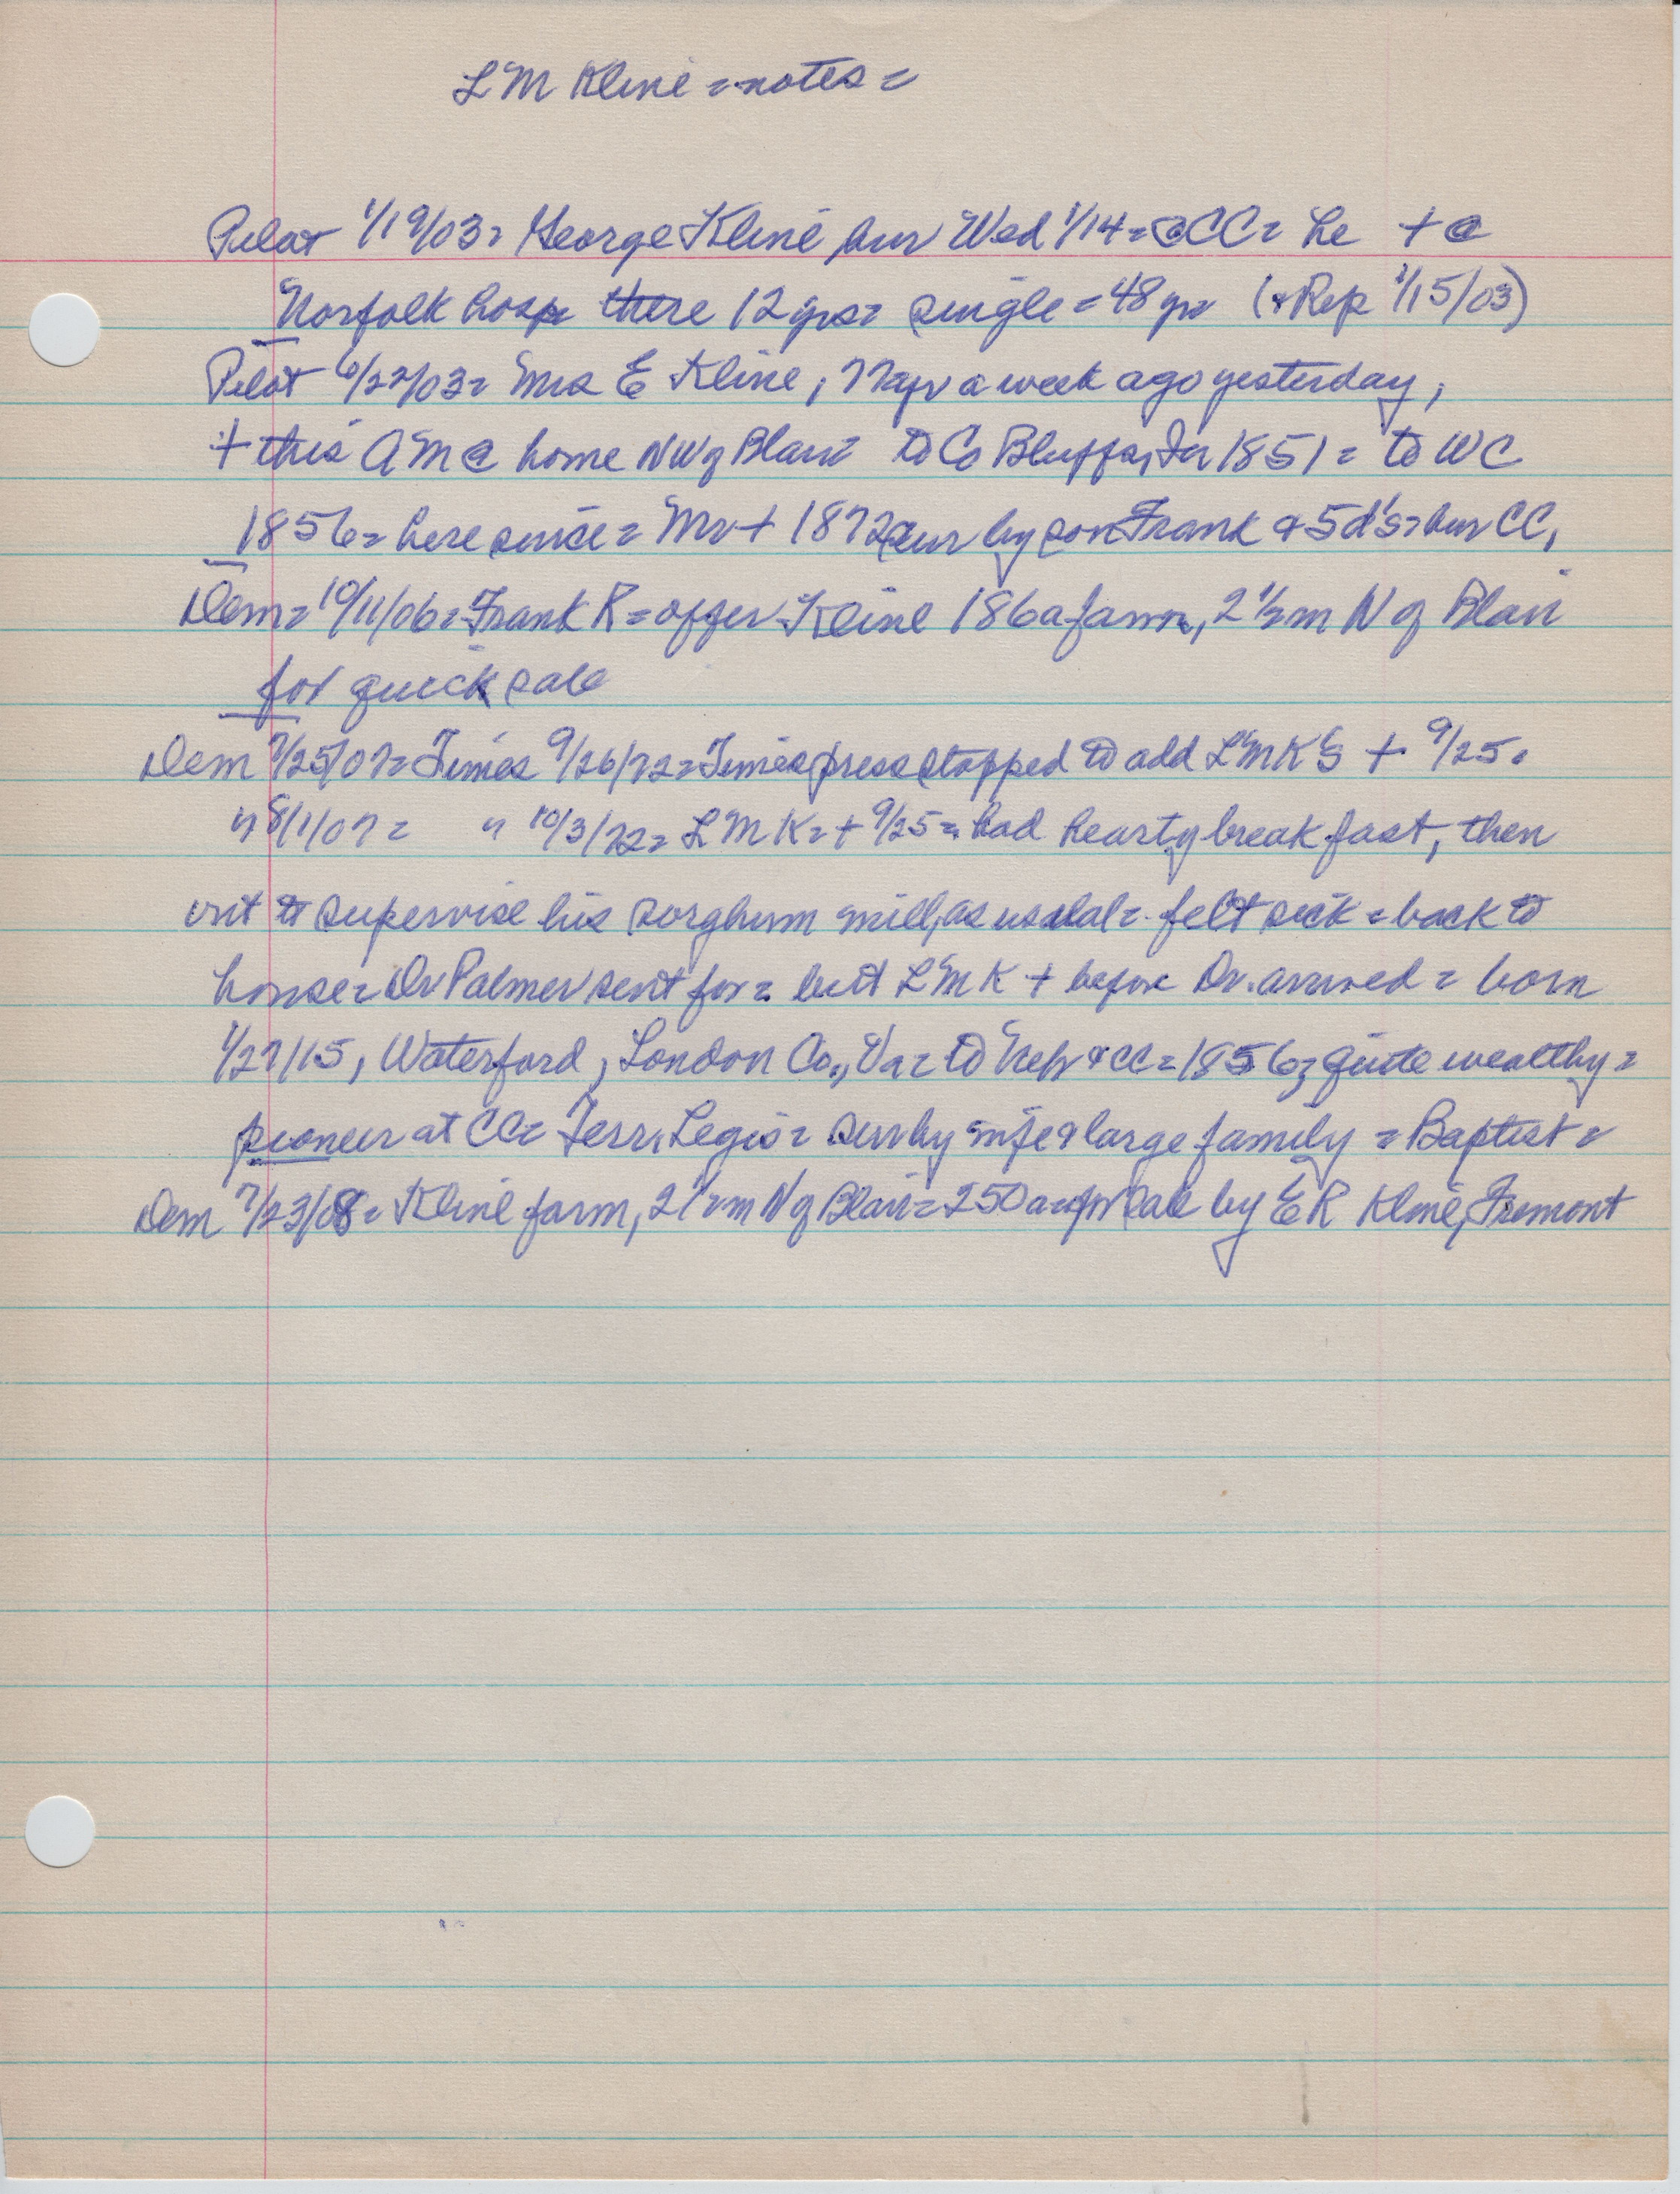 LM Kline = notes =
Pilot 1/19/03 = George Kline bur Wed 1/14 = @ CC = he + @
Norfolk hosp there 12 yrs = single = 48 yr (& Rep 1/15/03)
Pilot 6/22/03 = Mrs E Kline, 77 yr a week ago yesterday,
+ this AM @ home NW of Blair = to Co Bluffs, Ia 1851 = to WC
1856 = here since = Mr + 1872 sur by son Frank & 5 d's = bur CC,
Dem = 10/11/06 = Frank R = offer Kline 186 a farm, 2 1/2 m N of Blair
for quick sale
Dem 7/25/07 = Times 9/26/72 = Times press stopped to add LMK'S + 9/25.
" 8/1/07 = " 10/3/72 = LMK = + 9/25 = had hearty breakfast, then
out to supervise his sorghum mill, as usual = felt sick = back to
house = Dr Palmer sent for = but LMK + before Dr. arrived = born
1/27/15, Waterford, London Co., Va = to Neb & CC = 1856 = quite wealthy =
pioneer at CC = Terr. Legis = sur by wife & large family = Baptist =
Dem 7/23/08 = Kline farm, 2 1/2 m N of Blair = 250 a = for sale by E R Kline, Fremont